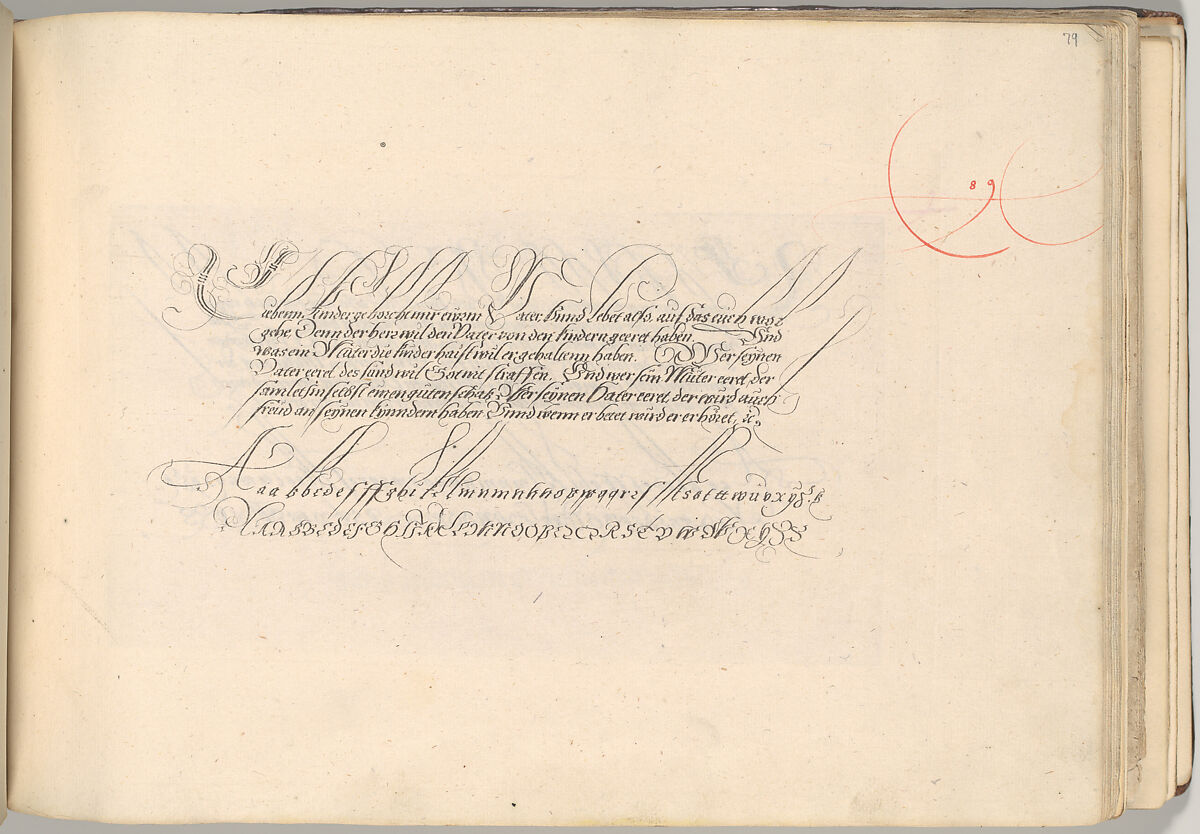 79
89
Lieben kinder gehorcht mir ewrm Vater Unnd lebet also, auf das euch wol
gehe, Denn der herr wil den Vater von den kindern geeret haben. Und
was ein Müter die kinder haist wil er gehaltenn haben. Wer seynen
Vater eeret des sünd wil Got nit straffen, Und wer sein Müter eeret, der
samlet sin selbst einen gůten schatz Wer seynen Vater eeret, der wird auch
freud an seynen kynndern haben Unnd wenn er betet wurd er erhöret, ꝛc.
A a a b b c d e f ff g h i k l l m n m n h h o p w q q r e s st s o t tt w u v x y z
A A A B B C D E F G H I K L M N O P Q R S T V W X Y Z